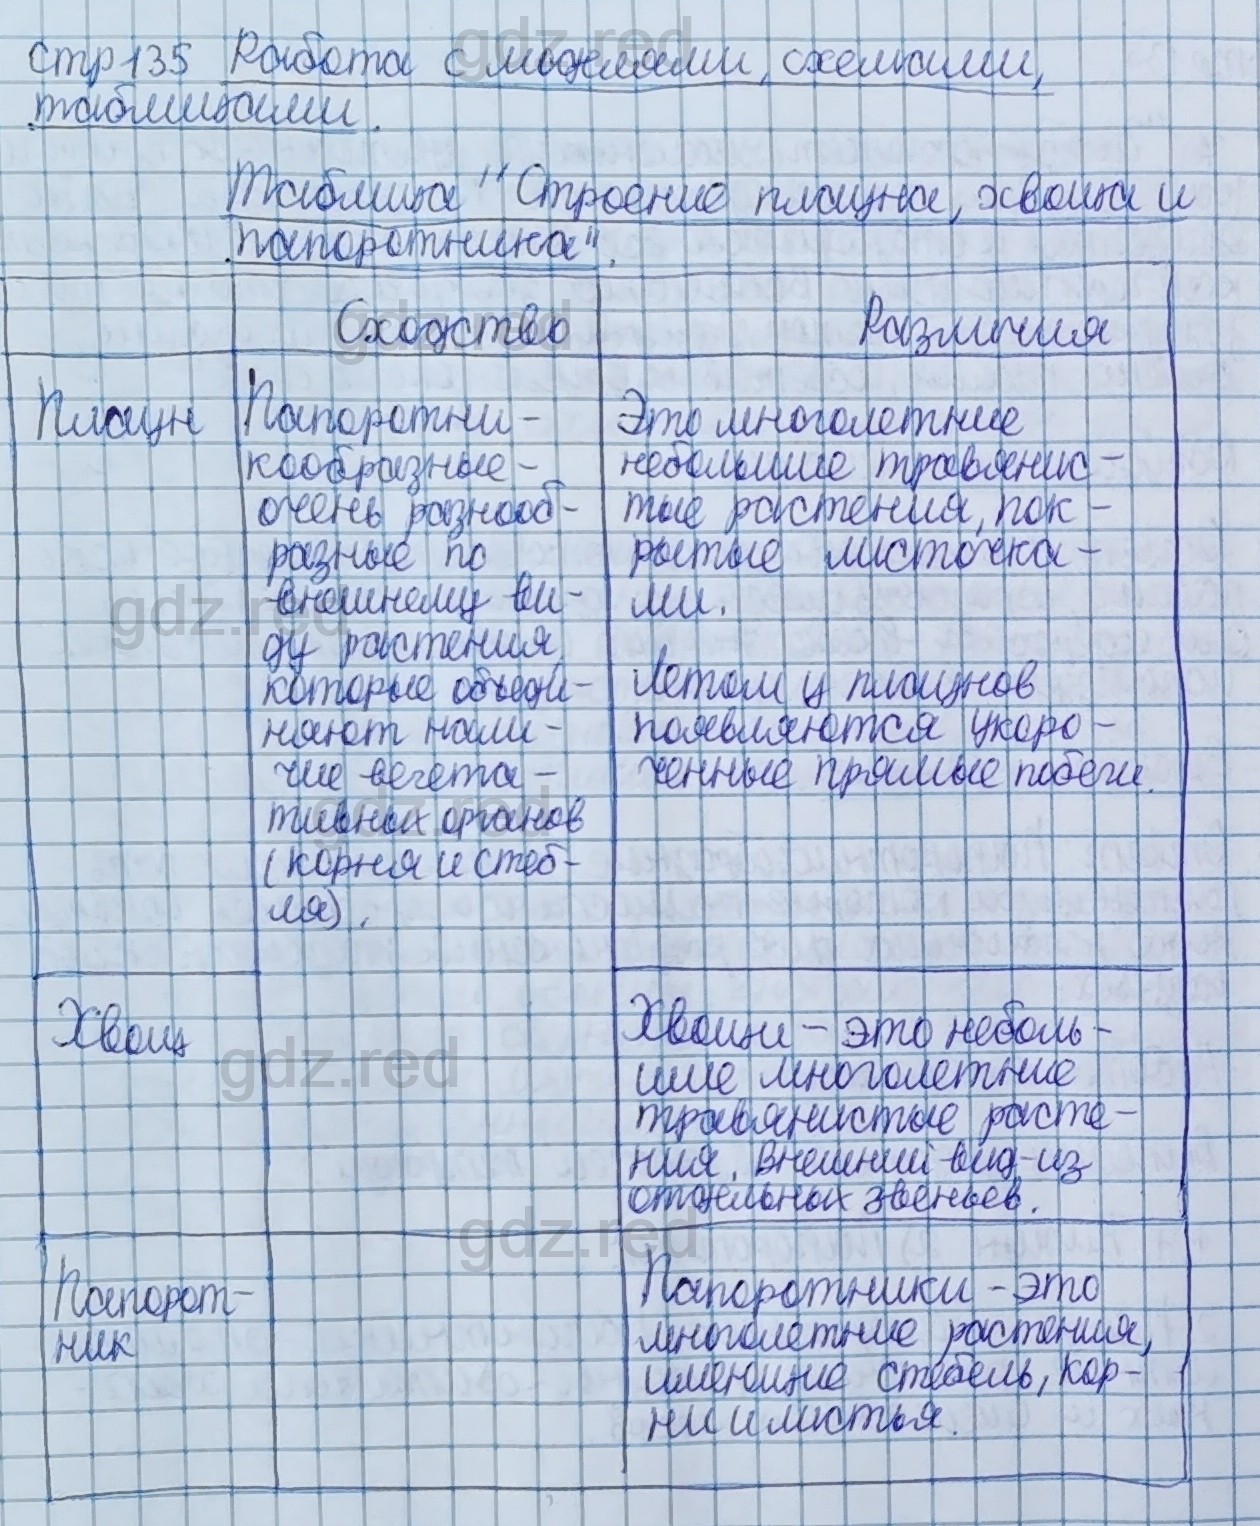 стр 135 Работа с моделями, схемами,
таблицами.
Таблица "Строение плауна, хвоща и
папоротника".
Сходство
Различия
Плаун
Папоротни-
кообразные-
очень разнооб-
разные по
внешнему ви-
ду растения,
которые объеди-
няют нали-
чие вегета-
тивных органов
(корня и стеб-
ля).
Это многолетние
небольшие травянис-
тые растения, пок-
рытые листочка-
ми.
Летом у плаунов
появляются укоро-
ченные прямые побеги.
Хвощ
Хвощи - это неболь-
шие многолетние
травянистые расте-
ния. Внешний вид-из
отдельных звеньев.
Папорот-
ник
Папоротники - это
многолетние растения,
имеющие стебель, кор-
ни и листья.
gdz.red
gdz.red
gdz.red
gdz.red
gdz.red
gdz.red